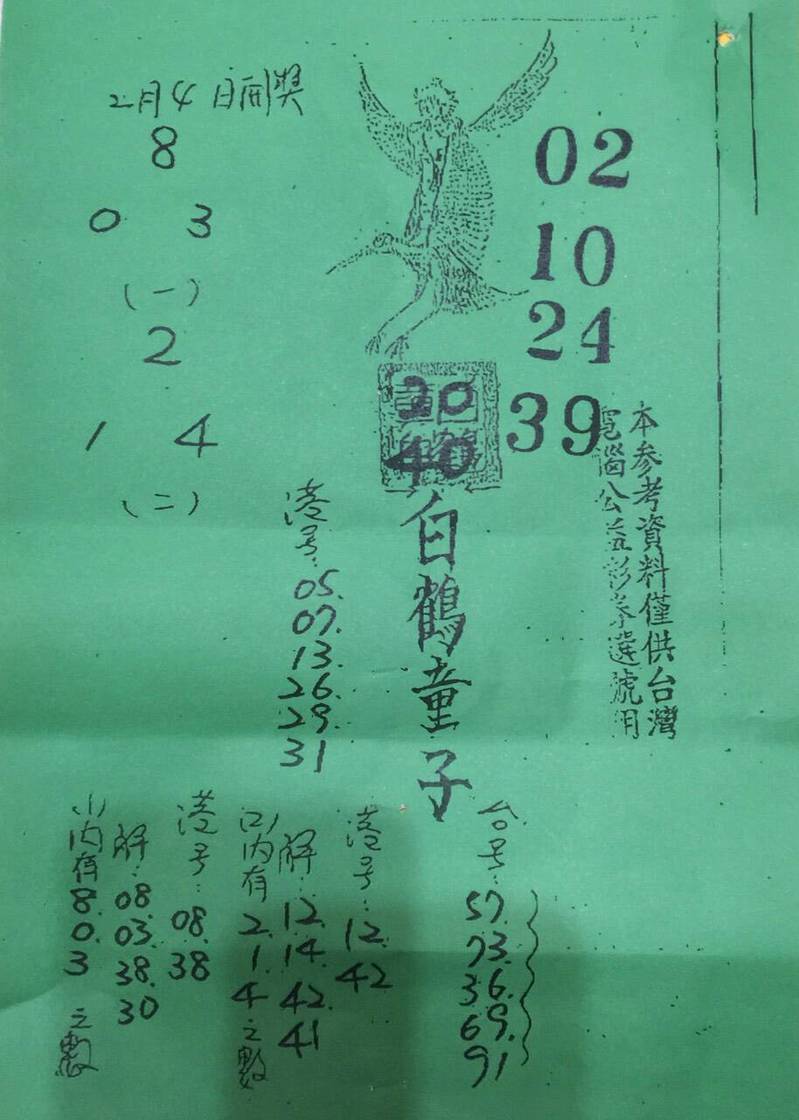 2月4日開獎
8
0 3
(一)
2
1 4
(二)
02
10
24
39
20
40
白鶴童子
本参考資料僅供台灣
電腦公益彩券選號用
港号:
05.
07.
13.
26.
29.
31
(1)內有
8.
0.
3
之數
解:
08.
03.
38.
30
港号:
08.
38
(2)內有
2.
1.
4
之數
解:
12.
14.
42.
41
港号:
12.
42
台号:
57.
73.
36.
69.
91